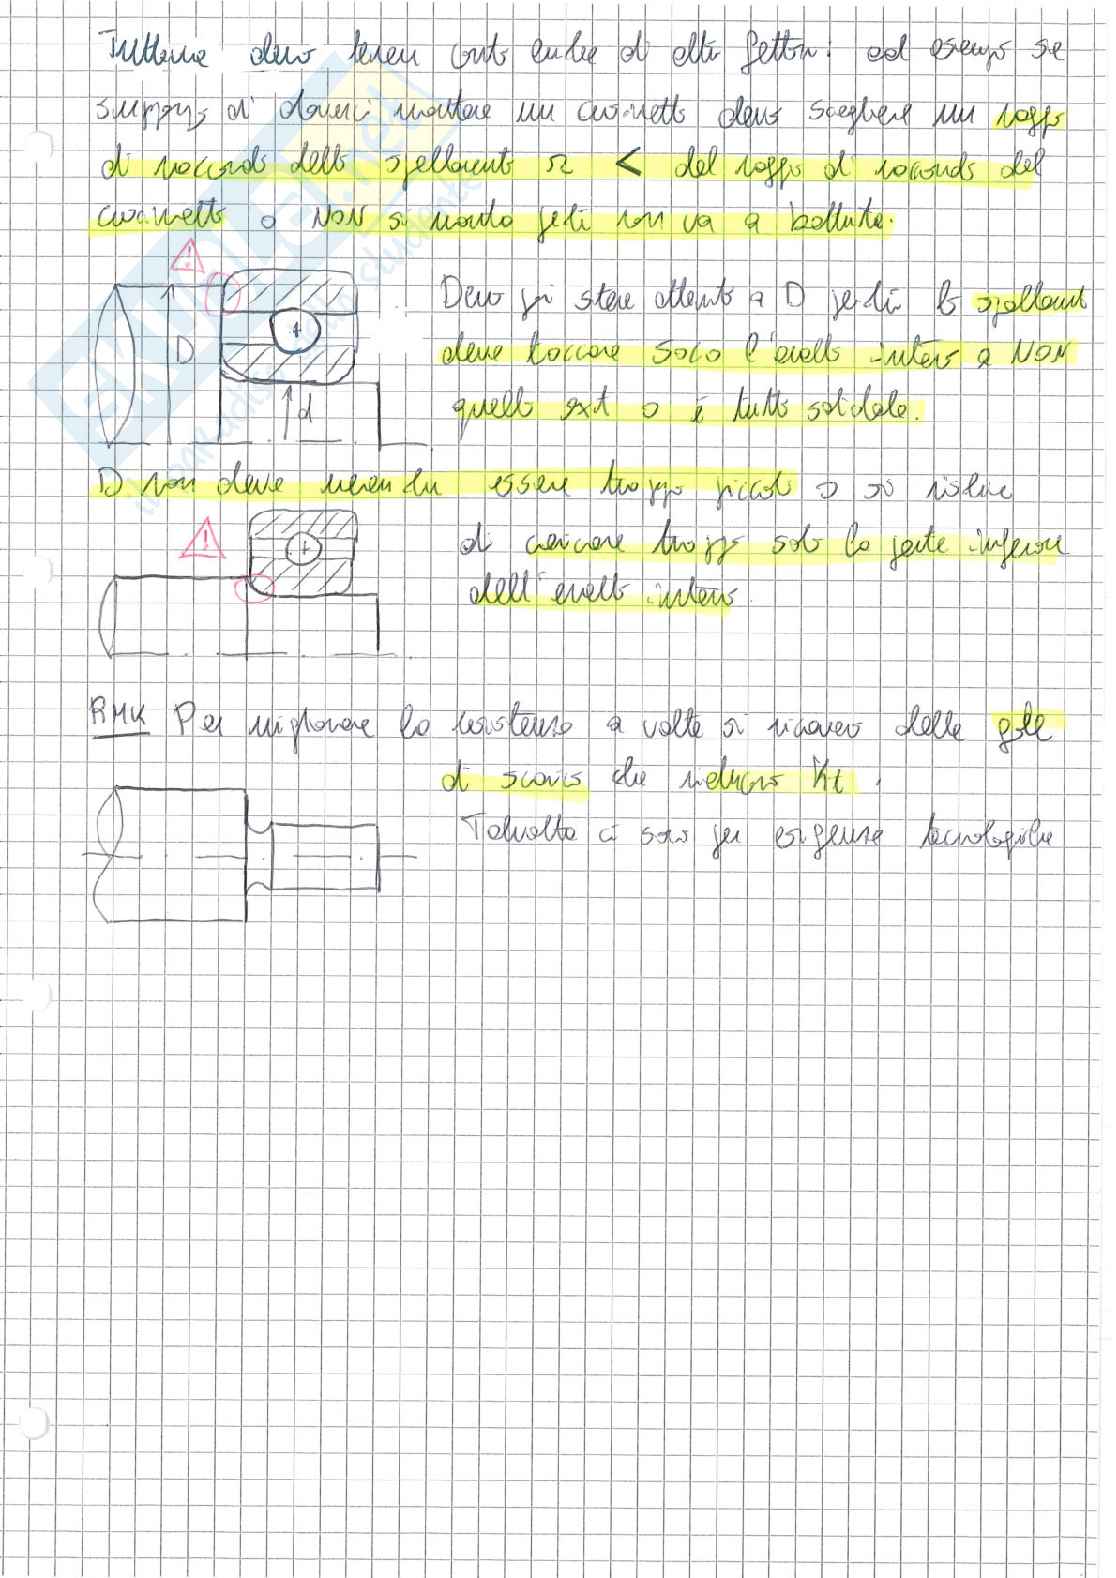 Tuttavia devo tenere conto anche di altri fattori: ad esempio se
suppongo di dover montare un cuscinetto devo scegliere un raggio
di raccordo dello spallamento r < del raggio di raccordo del
cuscinetto o NON si monta perché non va a battuta.
Devo poi stare attento a D perché lo spallamento
deve toccare solo l'anello interno e NON
quello ext o è tutto solidale.
D
d
D non deve neanche essere troppo piccolo o si rischia
di caricare troppo solo la parte inferiore
dell'anello interno.
RMK Per migliorare la resistenza a volte si ricavano delle gole
di scarico che riducono Kt.
Talvolta ci sono per esigenze tecnologiche
SKUOLA.net